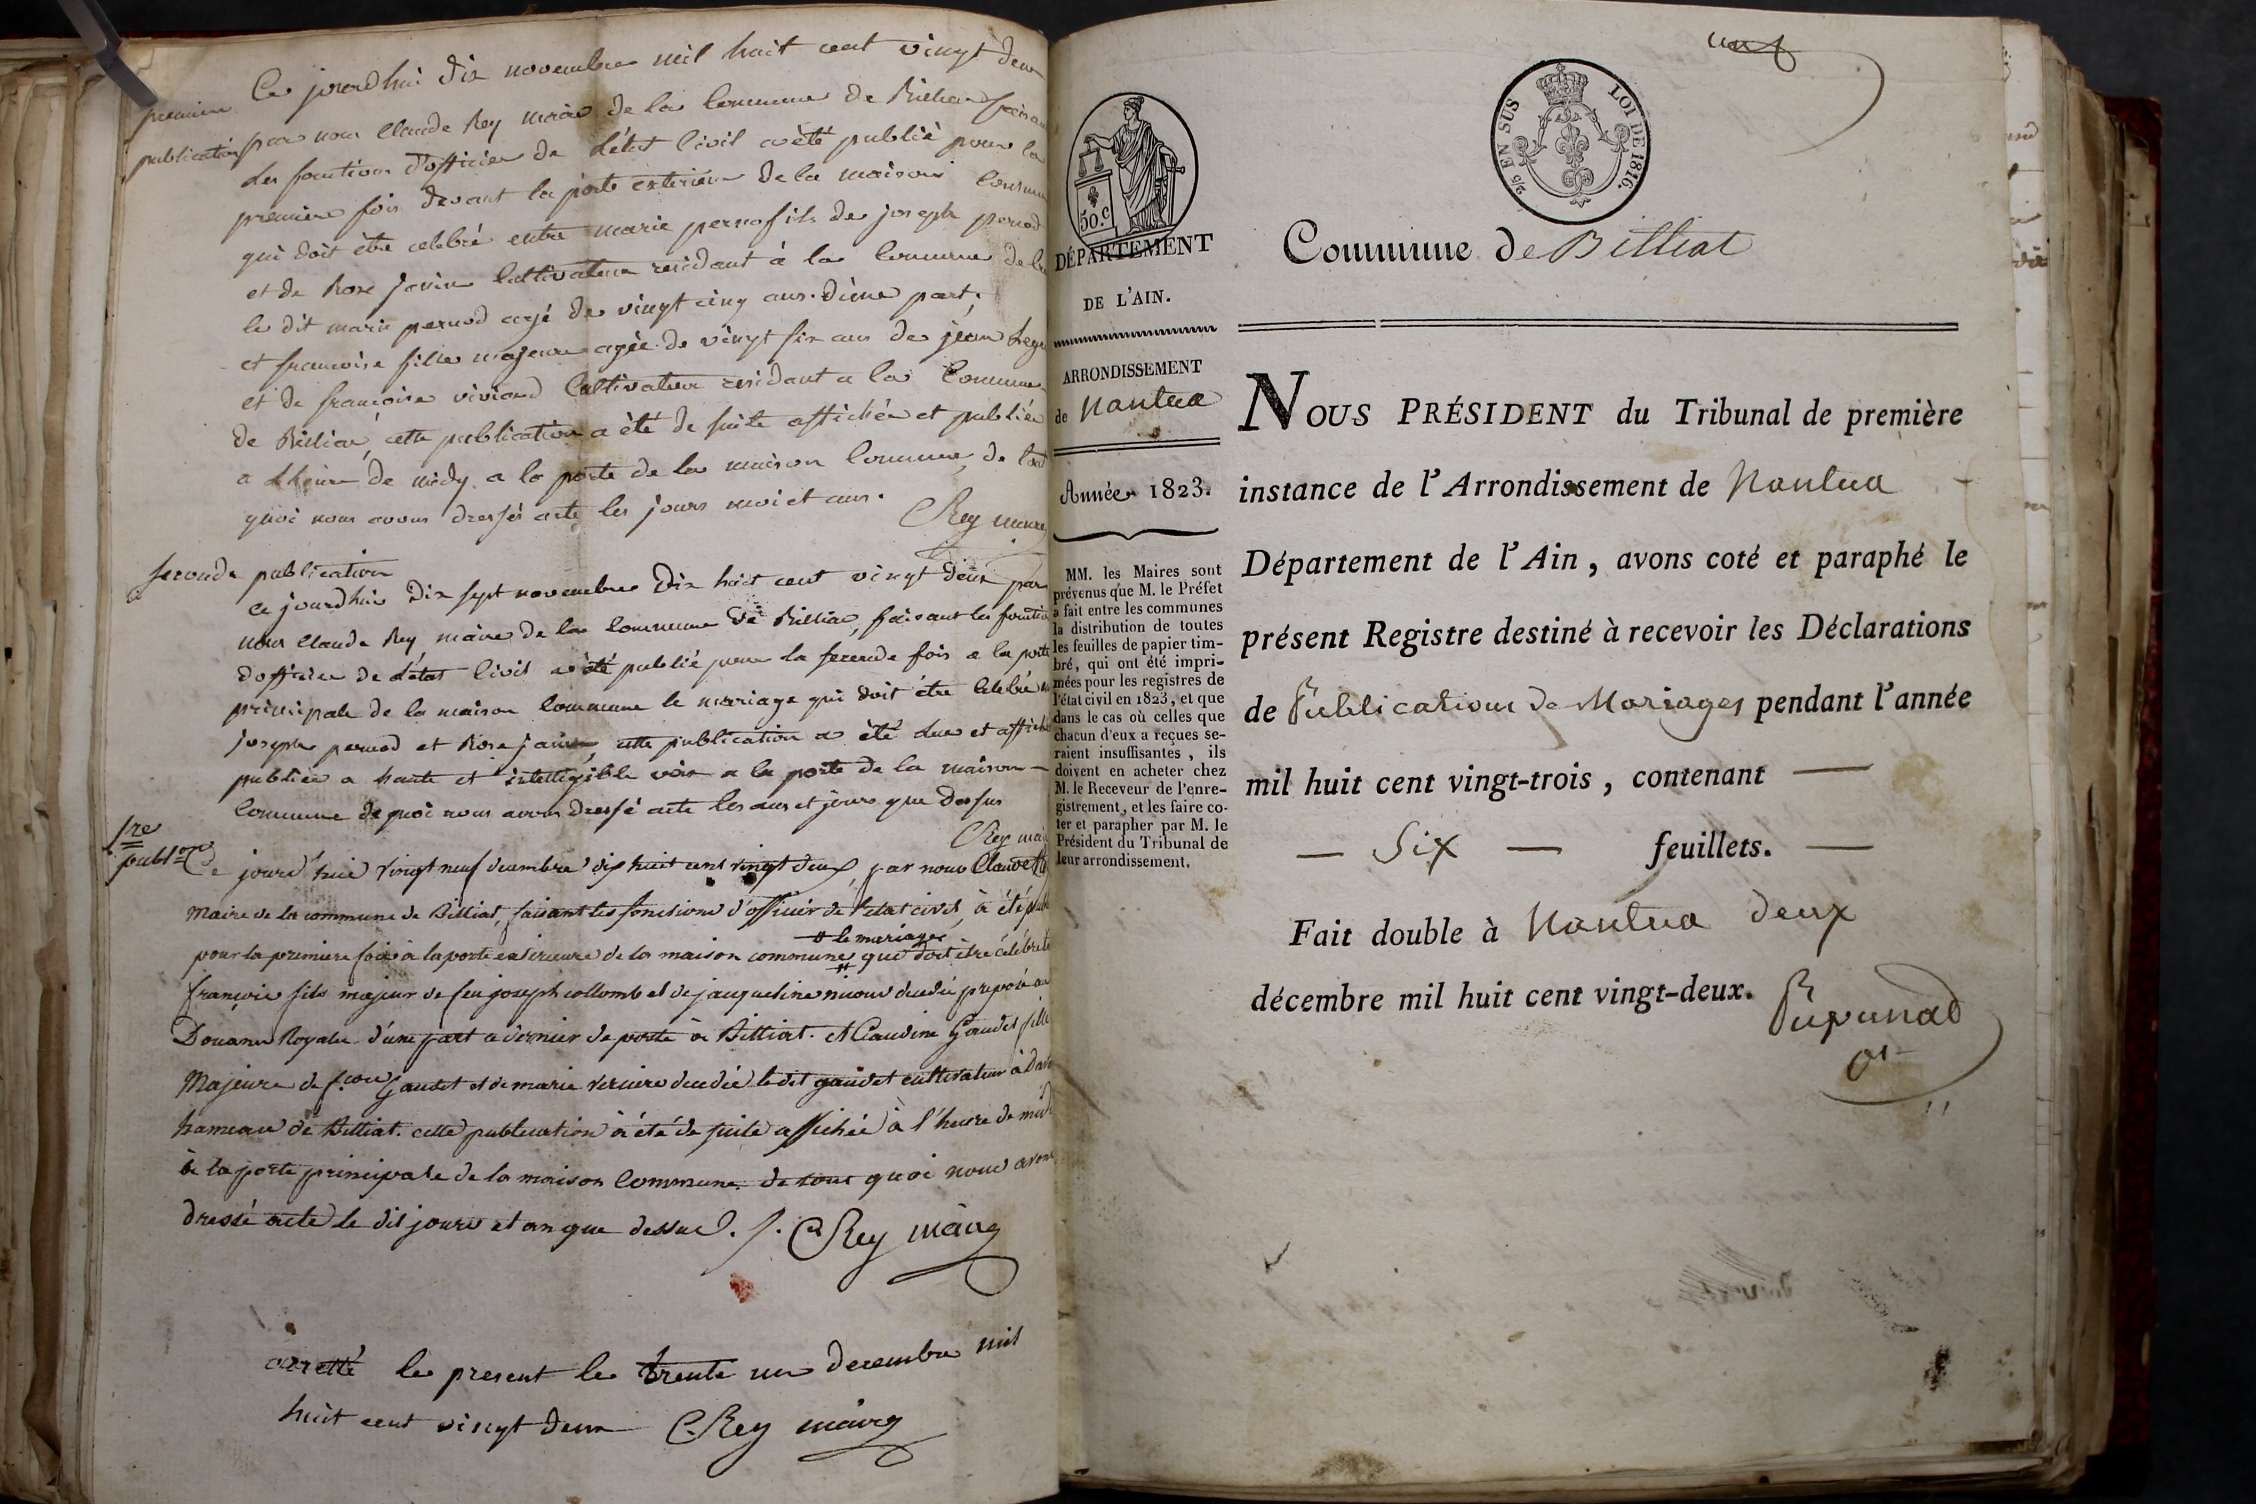 Ce jourdhui dix novembre mil huit cent vingt deux
premiere
publication
par nous Claude Rey maire de la Commune de Billia faisant
les fonctions d'officier de l'état Civil a èté publié pour la
premiere fois devant la porte exterieure de la maison Commune
qui doit être celebré entre marie pernod fils de joseph pernod
et de Rose Janin Cultivateur residant à la Commune de
le dit marie pernod agé de vingt cinq ans d'une part,
et francoise fille majeure agée de vingt six ans de jean
et de francoise viviand Cultivateur residant a la Commune
de Billia, cette publication a été de suite affichée et publiée
a l'heure de midy a la porte de la maison Commune, de tout
quoi nous avons dressés acte les jours moi et ans.
CRey maire
seconde publication
ce jourdhui dix sept novembre dix huit cent vingt deux par
nous Claude Rey maire de la Commune de Billia, faisant les fonctions
d'officier de l'état Civil a èté publié pour la seconde fois a la porte
principale de la maison Commune le mariage qui doit être celebré
joseph pernod et Rose janin, cette publication a été lue et affichée
publiée a haute et intelligible voix a la porte de la maison
Commune de quoi nous avons dressé acte les ans et jours que dessus
CRey maire
1re
publ.on
Ce jourd'huie vingt neuf decembre dix huit cent vingt deux, par nous Claude Rey
maire de la commune de Billiat, faisant les fonctions d'officier de l'etat civil, à été publié
# le mariage
pour la premiere fois à la porte exterieure de la maison commune # qui doit etre célébré
françois fils majeur de feu joseph collomb et de jacqueline decedée preposé aux
Douanes Royales d'une part a dernier de porte à Billiat. et Claudine Gaudet fille
Majeure de f.cois Gaudet et de marie decedée le dit gaudet cultivateur à
hameau de Billiat. cette publication à été de suite affichée à l'heure de midi
à la porte principale de la maison Commune. de tout quoi nous avons
dressé acte le dit jour et an que dessus. /. CRey maire
arretté le present le trente un decembre mil
huit cent vingt deux CRey maire
2/5 EN SUS
LOI DE 1816.
50.c
DÉPARTEMENT
DE L'AIN.
ARRONDISSEMENT
de Nantua
Année 1823.
MM. les Maires sont
prévenus que M. le Préfet
a fait entre les communes
la distribution de toutes
les feuilles de papier tim-
bré, qui ont été impri-
mées pour les registres de
l'état civil en 1823, et que
dans le cas où celles que
chacun d'eux a reçues se-
raient insuffisantes, ils
doivent en acheter chez
M. le Receveur de l'enre-
gistrement, et les faire co-
ter et parapher par M. le
Président du Tribunal de
leur arrondissement.
Commune de Billiat
NOUS PRÉSIDENT du Tribunal de première
instance de l'Arrondissement de Nantua
Département de l'Ain, avons coté et paraphé le
présent Registre destiné à recevoir les Déclarations
de Publications de Mariages pendant l'année
mil huit cent vingt-trois, contenant —
— Six — feuillets. —
Fait double à Nantua deux
décembre mil huit cent vingt-deux.